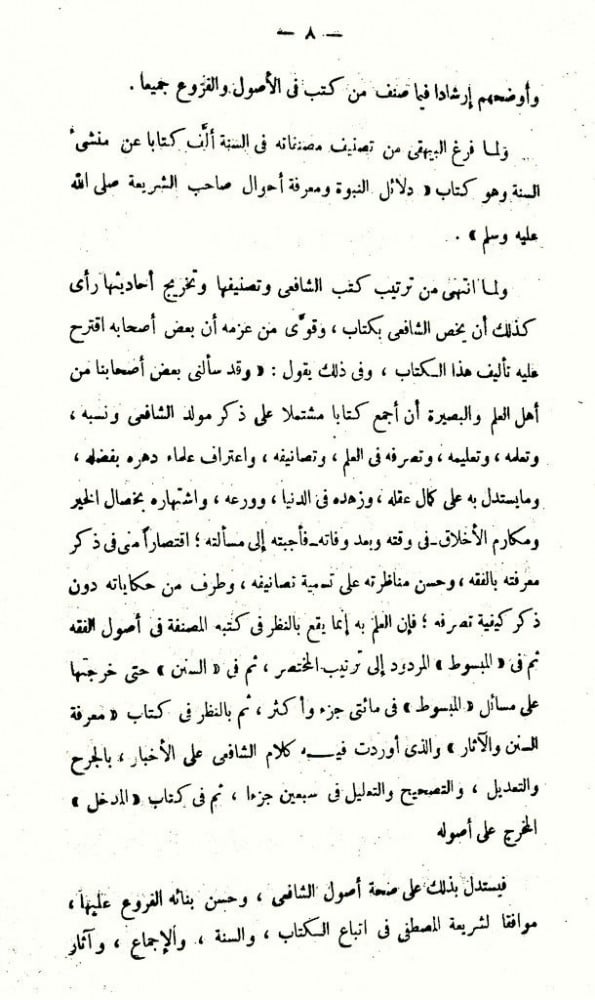 — ٨ —
وأوضحهم إرشادا فيما صنف من كتب فى الأصول والفروع جميعا .
ولما فرغ البيهقى من تصنيف مصنفاته فى السنة ألَّف كتابا عن منشىء
السنة وهو كتاب « دلائل النبوة ومعرفة أحوال صاحب الشريعة صلى الله
عليه وسلم » .
ولما انتهى من ترتيب كتب الشافعى وتصنيفها وتخريج أحاديثها رأى
كذلك أن يخص الشافعى بكتاب ، وقوَّى من عزمه أن بعض أصحابه اقترح
عليه تأليف هذا الكتاب ، وفى ذلك يقول : « وقد سألنى بعض أصحابنا من
أهل العلم والبصيرة أن أجمع كتابا مشتملا على ذكر مولد الشافعى ونسبه ،
وتعلمه ، وتعليمه ، وتصرفه فى العلم ، وتصانيفه ، واعتراف علماء دهره بفضله ،
ومايستدل به على كمال عقله ، وزهده فى الدنيا ، وورعه ، واشتهاره بخصال الخير
ومكارم الأخلاق ـ فى وقته وبعد وفاته ـ فأجبته إلى مسألته ؛ اقتصاراً منى فى ذكر
معرفته بالفقه ، وحسن مناظرته على تسمية تصانيفه ، وطرف من حكاياته دون
ذكر كيفية تصرفه ؛ فإن العلم به إنما يقع بالنظر فى كتبه المصنفة فى أصول الفقه
ثم فى « المبسوط » المردود إلى ترتيب المختصر ، ثم فى « السنن » حتى خرجتها
على مسائل « المبسوط » فى مائتى جزء وأكثر ، ثم بالنظر فى كتاب « معرفة
السنن والآثار » والذى أوردت فيه كلام الشافعى على الأخبار ، بالجرح
والتعديل ، والتصحيح والتعليل فى سبعين جزءا ، ثم فى كتاب « المدخل »
المخرج على أصوله
فيستدل بذلك على صحة أصول الشافعى ، وحسن بنائه الفروع عليها ،
موافقا لشريعة المصطفى فى اتباع الكتاب ، والسنة ، والإجماع ، وآثار